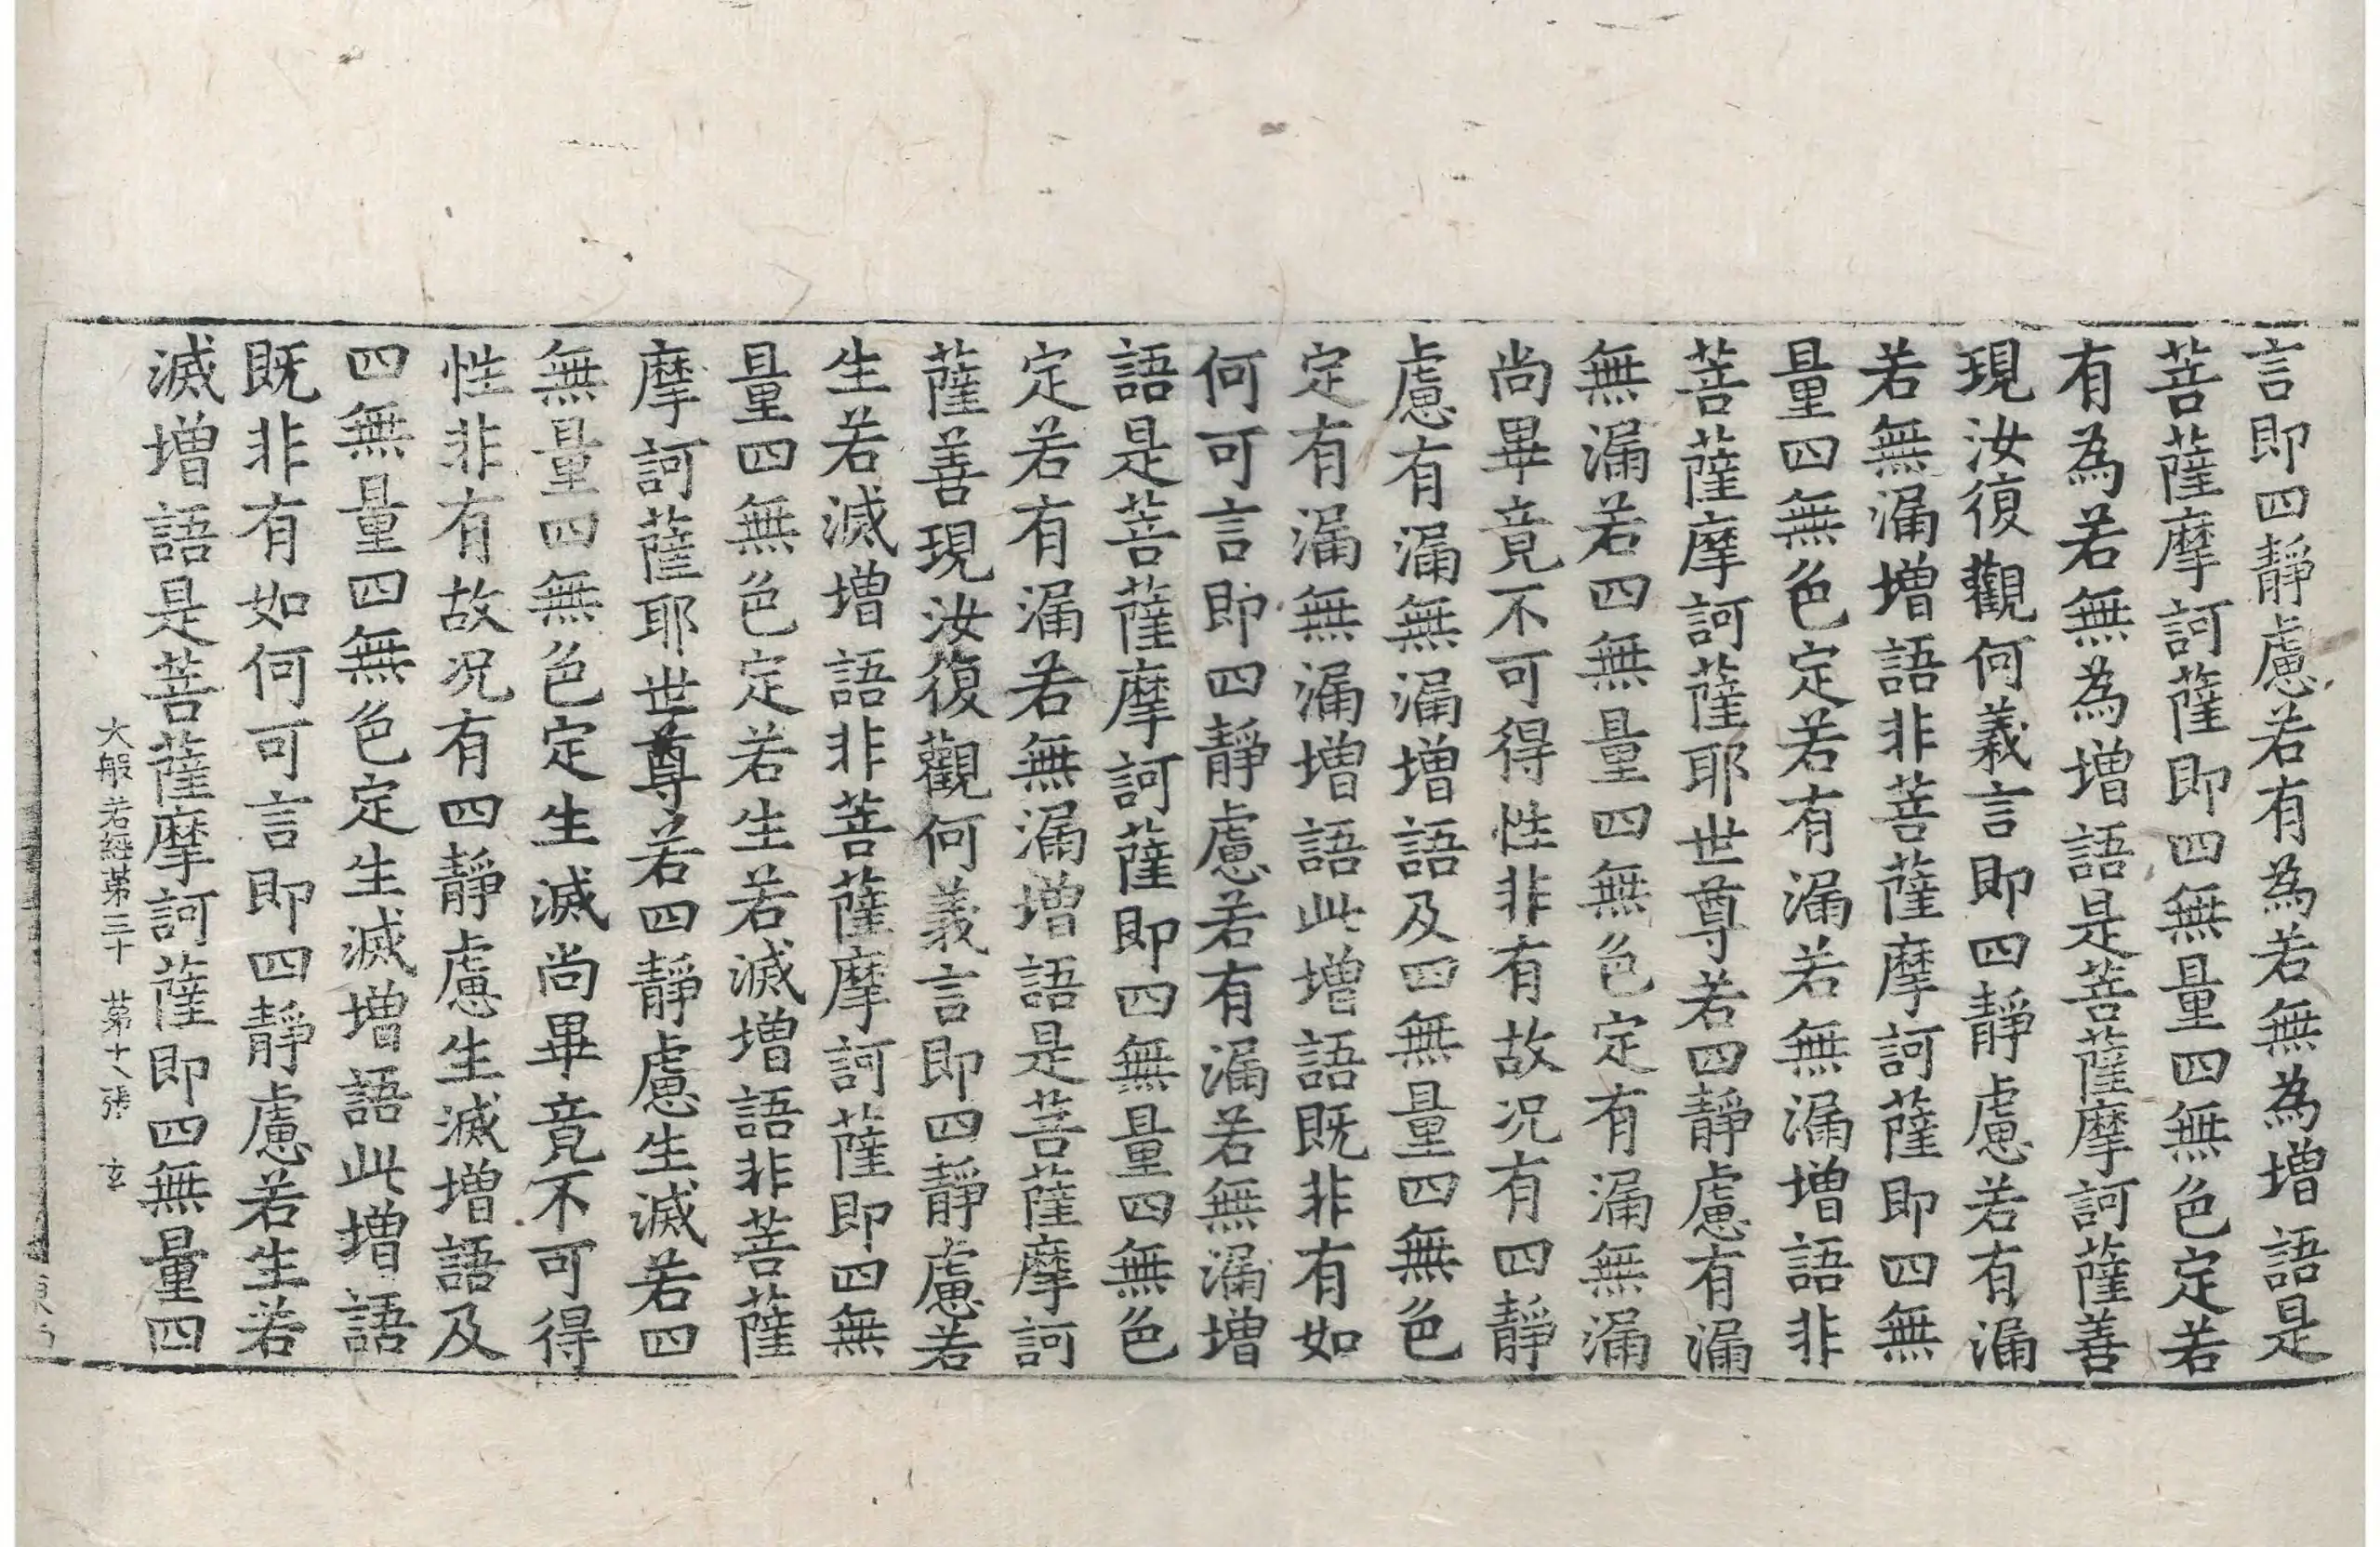 言即四靜慮若有為若無為增語是
菩薩摩訶薩即四無量四無色定若
有為若無為增語是菩薩摩訶薩善
現汝復觀何義言即四靜慮若有漏
若無漏增語非菩薩摩訶薩即四無
量四無色定若有漏若無漏增語非
菩薩摩訶薩耶世尊若四靜慮有漏
無漏若四無量四無色定有漏無漏
尚畢竟不可得性非有故况有四靜
慮有漏無漏增語及四無量四無色
定有漏無漏增語此增語既非有如
何可言即四靜慮若有漏若無漏增
語是菩薩摩訶薩即四無量四無色
定若有漏若無漏增語是菩薩摩訶
薩善現汝復觀何義言即四靜慮若
生若滅增語非菩薩摩訶薩即四無
量四無色定若生若滅增語非菩薩
摩訶薩耶世尊若四靜慮生滅若四
無量四無色定生滅尚畢竟不可得
性非有故况有四靜慮生滅增語及
四無量四無色定生滅增語此增語
既非有如何可言即四靜慮若生若
滅增語是菩薩摩訶薩即四無量四
大般若經第三十 第十八張 玄